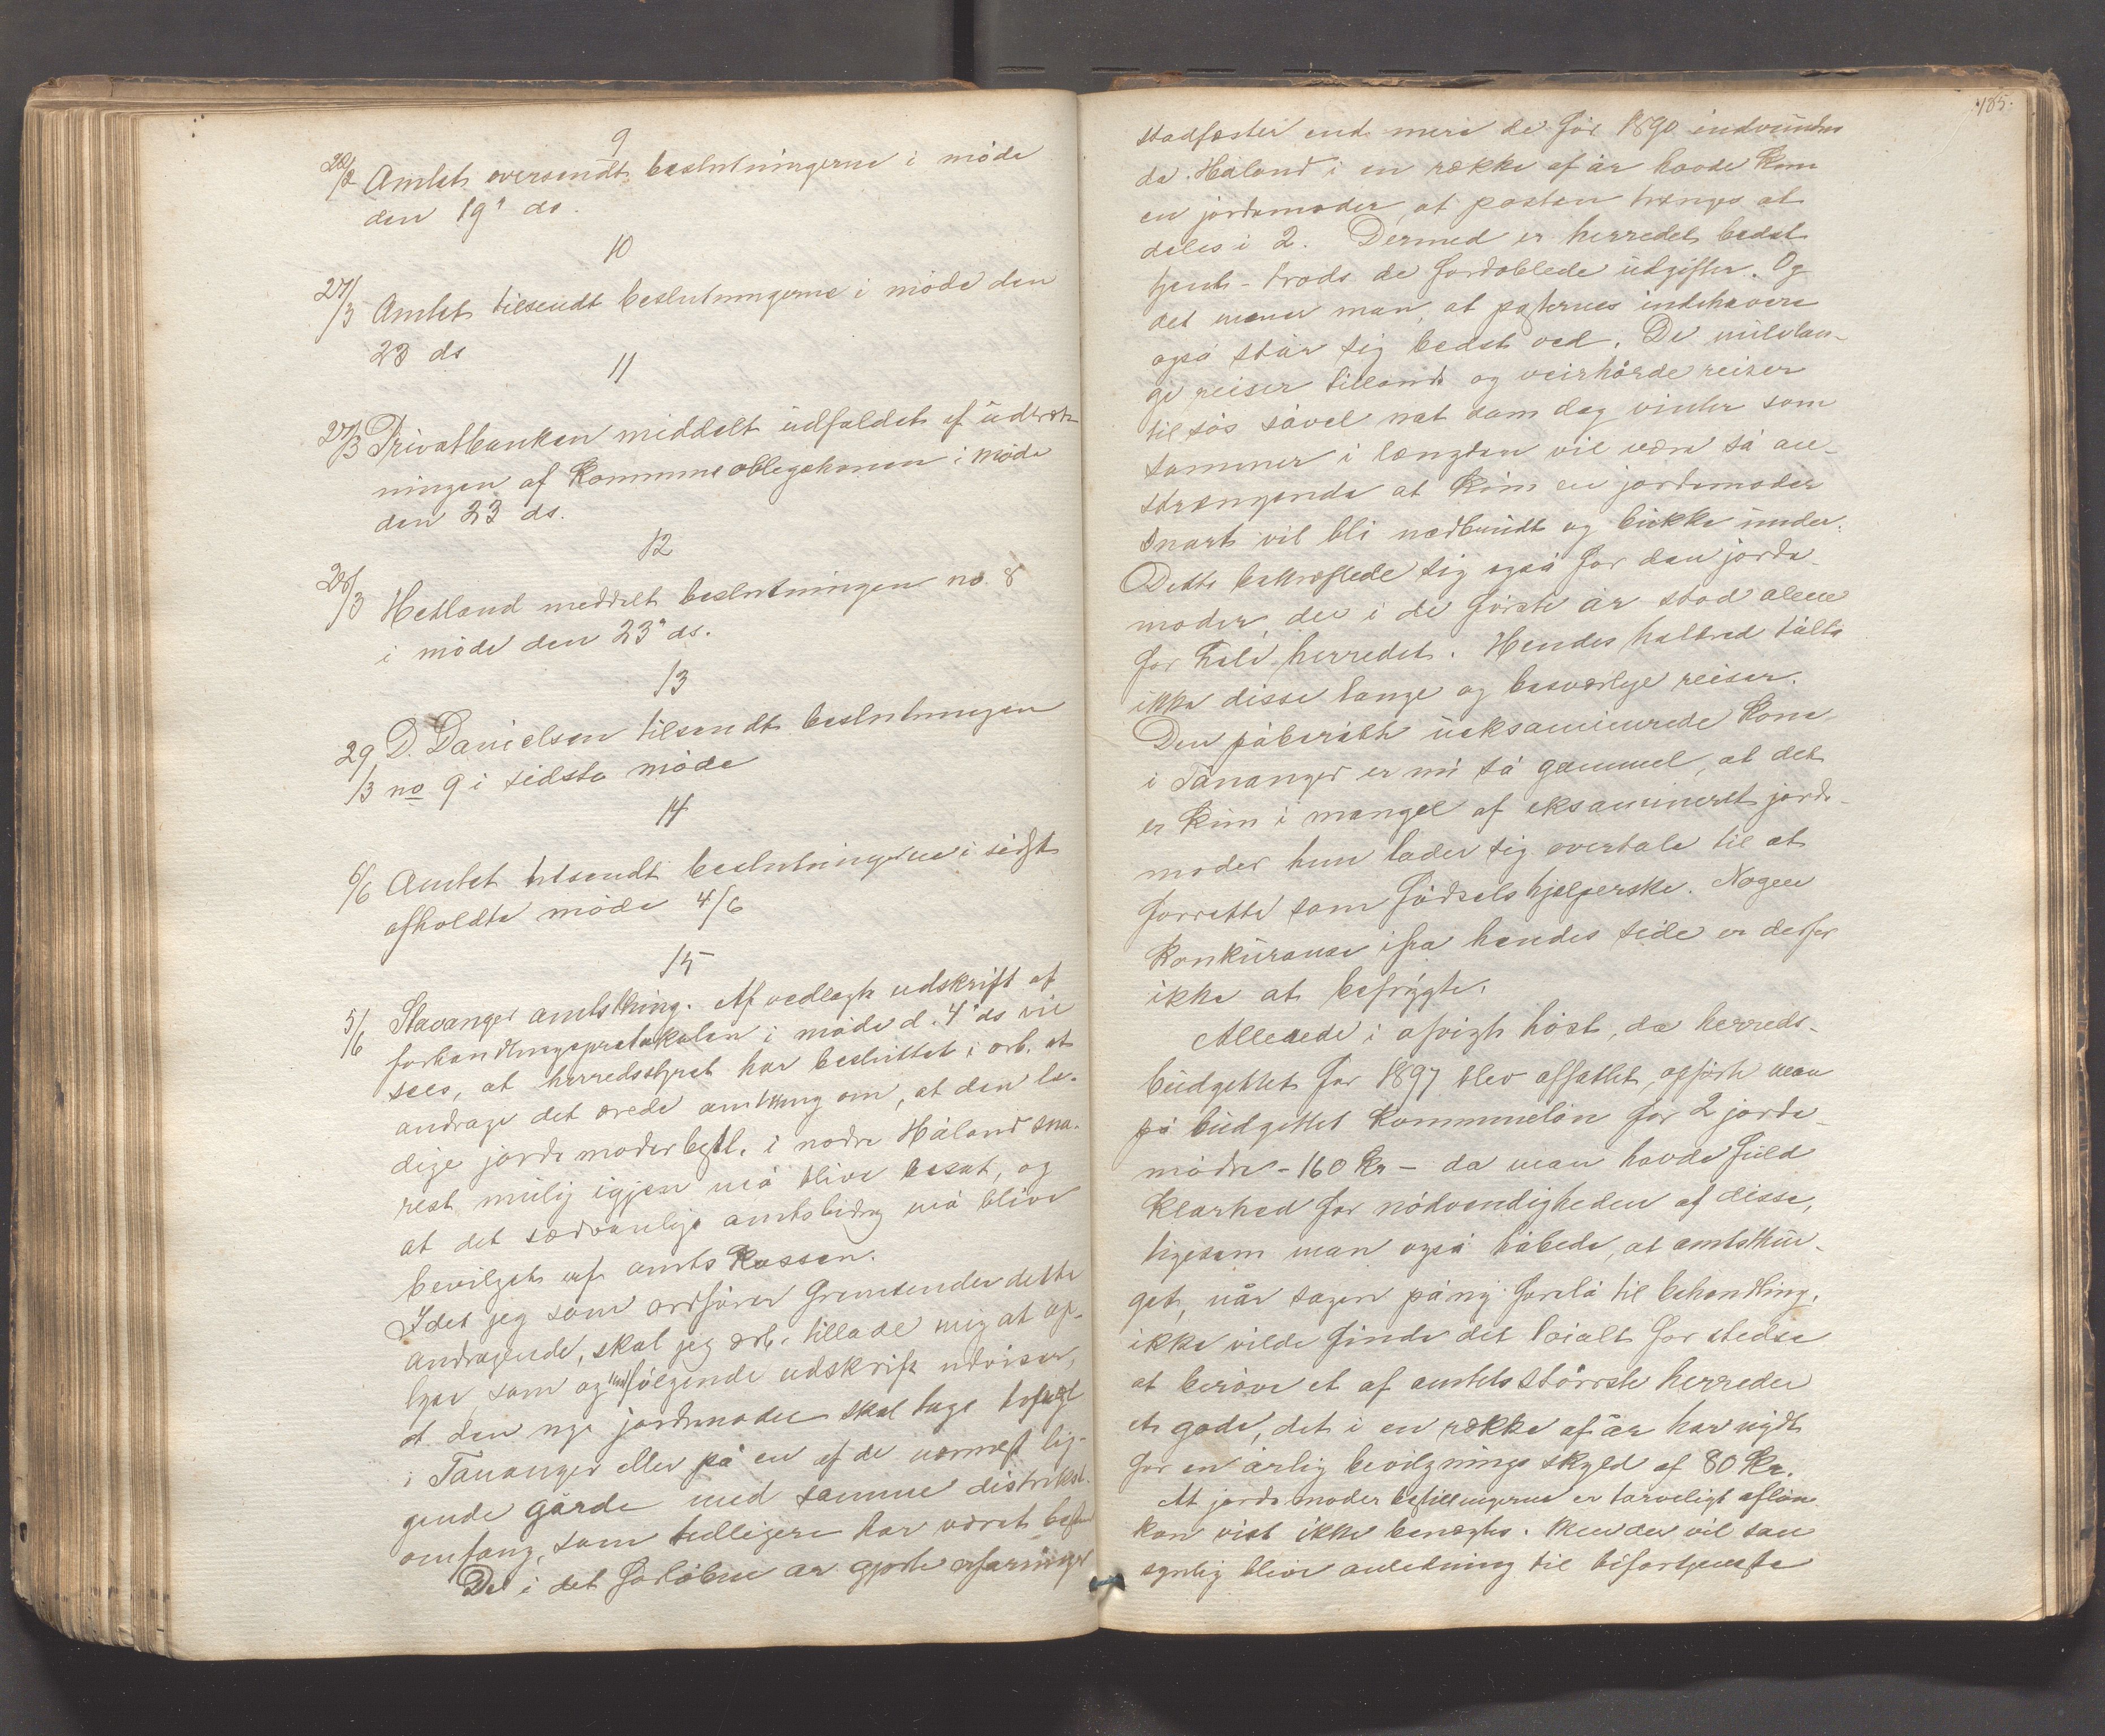 9
22/2 Amtet oversendt beslutningerne i møde
den 19' ds.
10
27/3 Amtet tilsendt beslutningerne i møde den
23 ds
11
27/3 Privatbanken middelt udfaldet af udtræk-
ningen af Kommuneobligationen i møde
den 23 ds.
12
28/3 Hetland meddelt beslutningen no. 8
i møde den 23' ds.
13
29/3 D. Danielsen tilsendt beslutningen
no 9 i sidste møde
14
6/6 Amtet tilsendt beslutningerne i sidst
afholdte møde 4/6
15
5/6 Stavanger amtsthing. Af vedlagte udskrift af
forhandlingsprotokolen i møde d. 4' ds vil
sees, at herredsstyret har besluttet i ærb. at
andrage det ærede amtsting om, at den le-
dige jordemoderbestl. i nodre Håland sna-
rest mulig igjen må blive besat, og
at det sædvanlige amtsbidrag må blive
bevilget af amtskassen.
Idet jeg som ordfører fremsender dette
andragende, skal jeg ærb. tillade mig at op-
lyse, som og medfølgende udskrift udviser,
at den nye jordemoder skal tage bopæl
i Tananger eller på en af de nærmest lig-
gende gårde med samme distrikts-
omfang, som tidligere har været bestemt
De i det forløbne år gjorte erfaringer
185.
stadfæster end mere de før 1890 indvundne
da Håland i en række af år havde kun
en jordemoder, at posten trænges at
deles i 2. Dermed er herredet bedst
tjent - trods de fordoblede udgifter. Og
det mener man, at posternes indehavere
også står sig bedst ved. De milelan-
ge reiser tillands og veirhårde reiser
til sös såvel nat som dag vinter som
sommer i længden vil være så an-
strængende at kun en jordemoder
snart vil bli nedbrudt og bukke under.
Dette bekræftede sig også for den jorde-
moder, der i de første år stod alene
for hele herredet. Hendes helbred tålte
ikke disse lange og besværlige reiser.
Den påberåbte ueksaminerede kone
i Tananger er nu så gammel, at det
er kun i mangel af eksamineret jorde-
moder hun lader sig overtale til at
forrette som fødselshjælperske. Nogen
konkurance ifra hendes side er derfor
ikke at befrygte.
Allerede i afvigte höst, da herreds-
budgettet for 1897 blev affattet, opførte man
på budgettet kommunelön for 2 jorde-
mödre - 160 Kr - da man havde fuld
klarhed for nödvendigheden af disse,
ligesom man også håbede, at amtsthin-
get, når sagen påny forelå til behandling,
ikke vilde finde det loialt for stedse
at beröve et af amtets största herreder
et gode, det i en række af år har nydt
for en årlig bevilgnings skyld af 80 Kr.
At jordemoderbestillingerne er tarveligt aflön.
kan vist ikke benægtes. Men der vil san
synlig blive anledning til bifortjeneste